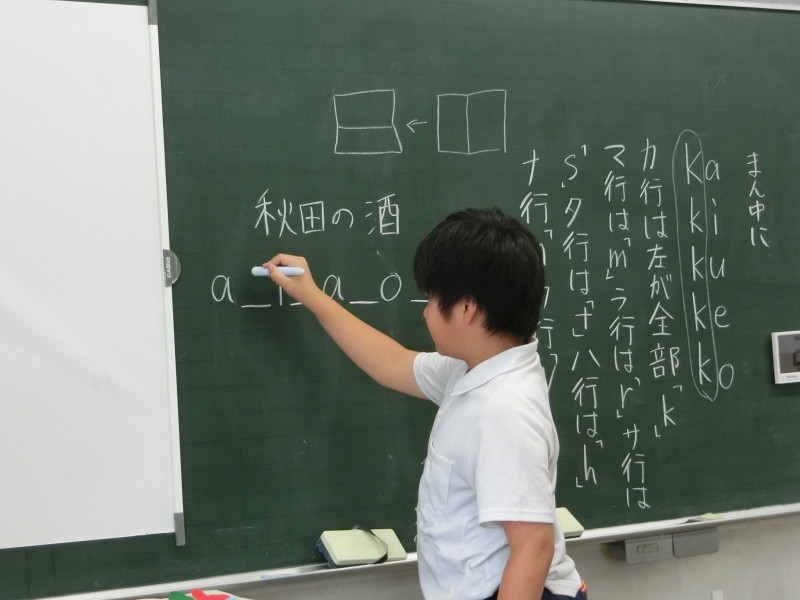 まん中に
ka
ki
ku
ke
ko
カ行は左が全部「k」
マ行は「m」ラ行は「r」サ行は
「s」タ行は「t」ハ行は「h」
ナ行
秋田の酒
a_i_a_o_
CASIO